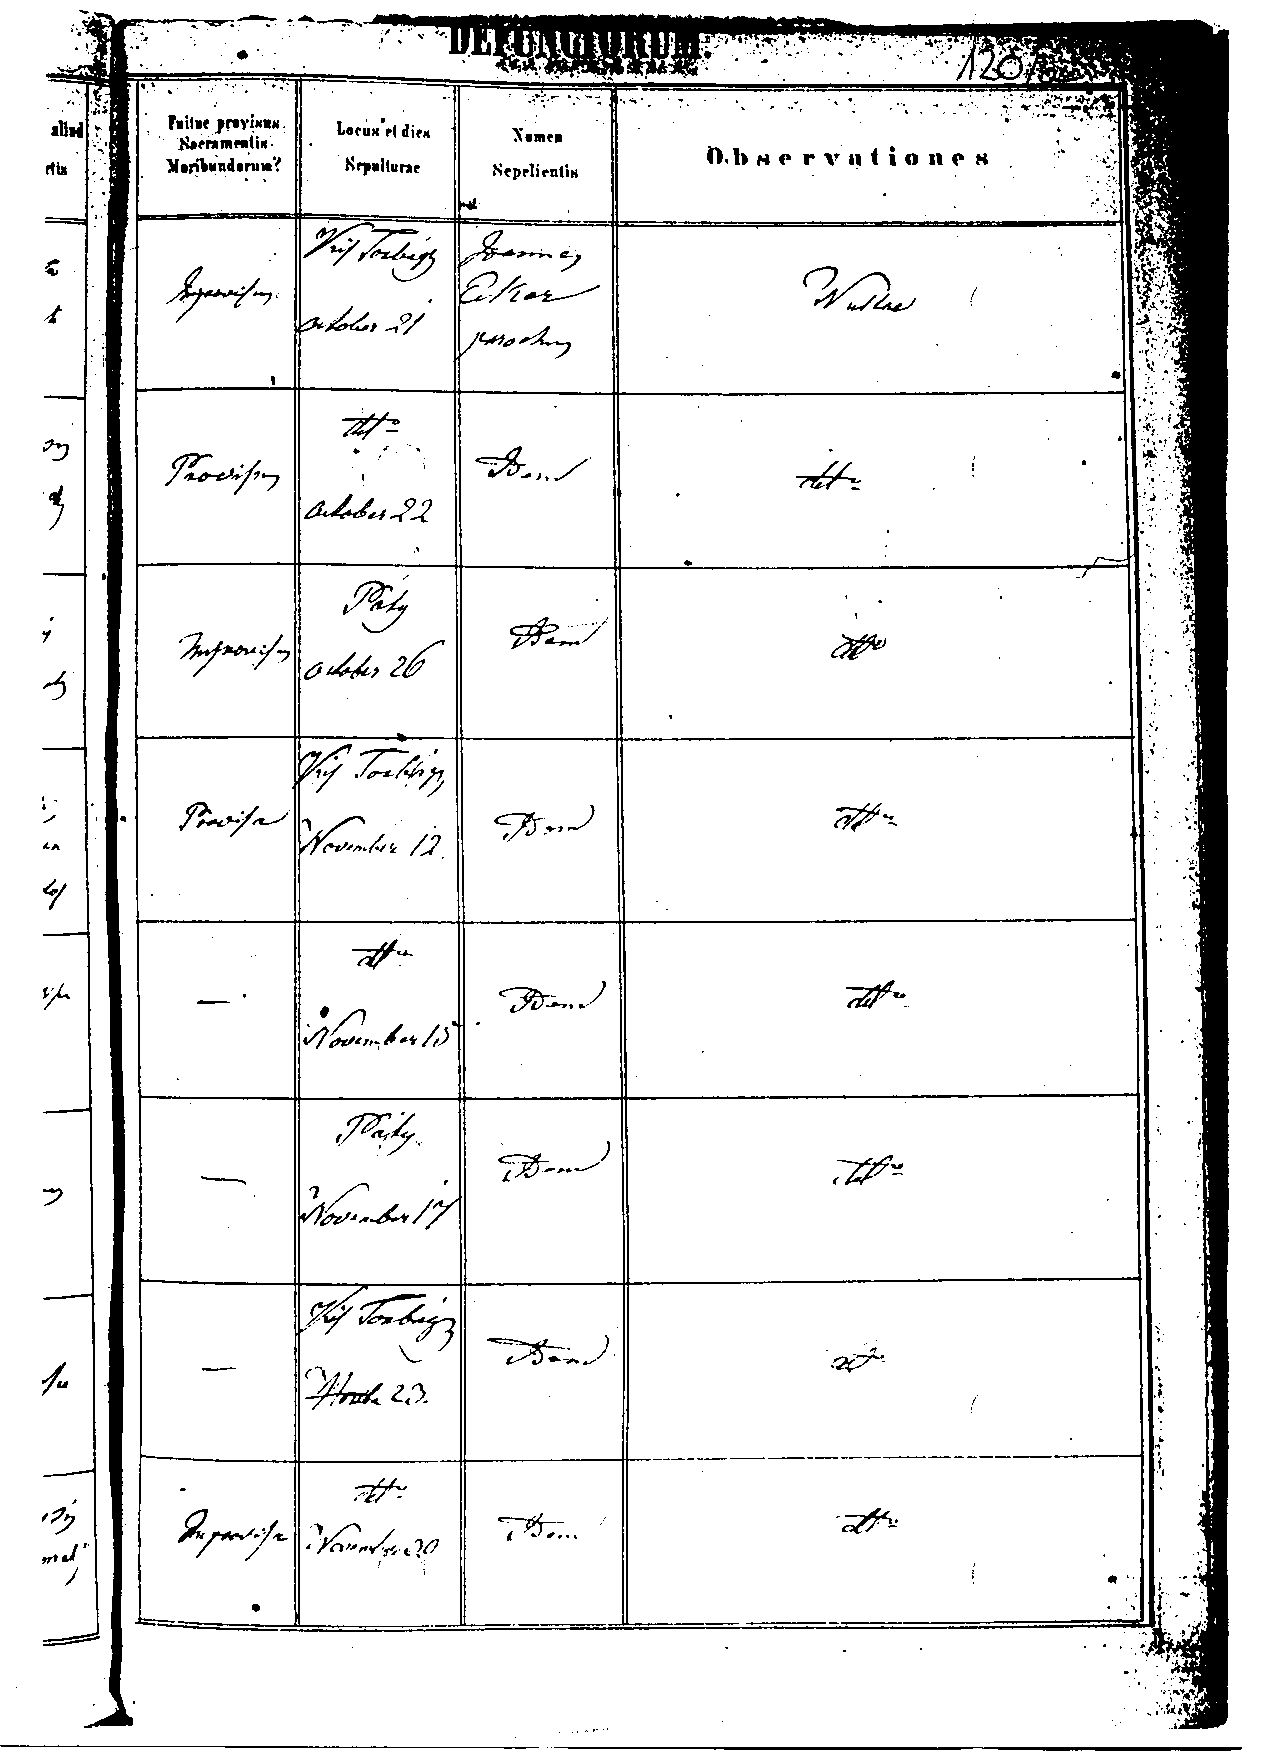 DEFUNCTORUM.
120
Fuitne provisus
Sacramentis
Moribundorum?
Locus et dies
Sepulturae
Nomen
Sepelientis
Observationes
Improvisus
Kis Torbágy
October 21
Joannes
Eker
parochus
Nullae
Provisus
dtto
October 22
Idem
dtto
Improvisus
Páty
October 26
Idem
dtto
Provisa
Kis Torbágy
November 12
Idem
dtto
—
dtto
November 15
Idem
dtto
—
Páty
November 17
Idem
dtto
—
Kis Torbágy
23.
Idem
dtto
Improvisa
dtto
November 20
Idem
dtto